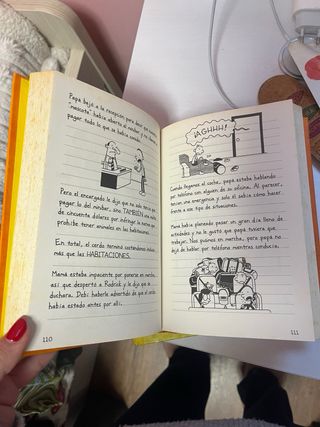 Papá bajó a la recepción para decir que nuestra
"mascota" había abierto el minibar y no
pagar todo lo que se había comido.
Pero el encargado le dijo que no solo tenía que
pagar lo del minibar, sino TAMBIÉN una multa
de cincuenta dólares por infringir la norma que
prohíbe tener animales en las habitaciones.
En total, el cerdo terminó costándonos incluso
más que las HABITACIONES.
Mamá estaba impaciente por ponerse en marcha,
así que despertó a Rodrick y le dijo que se
duchara. Debí haberle advertido que el cerdo
había estado antes por allí.
110
¡AGHHH!
Cuando llegamos al coche, papá estaba hablando
por teléfono con alguien de su oficina. Al parecer,
tenían una emergencia y solo él sabía cómo hacer
frente a ese tipo de situaciones.
Mamá había planeado pasar un gran día lleno de
actividades y no le gustó que papá tuviera que
trabajar. Nos pusimos en marcha, pero papá no
dejó de hablar por teléfono mientras conducía.
111